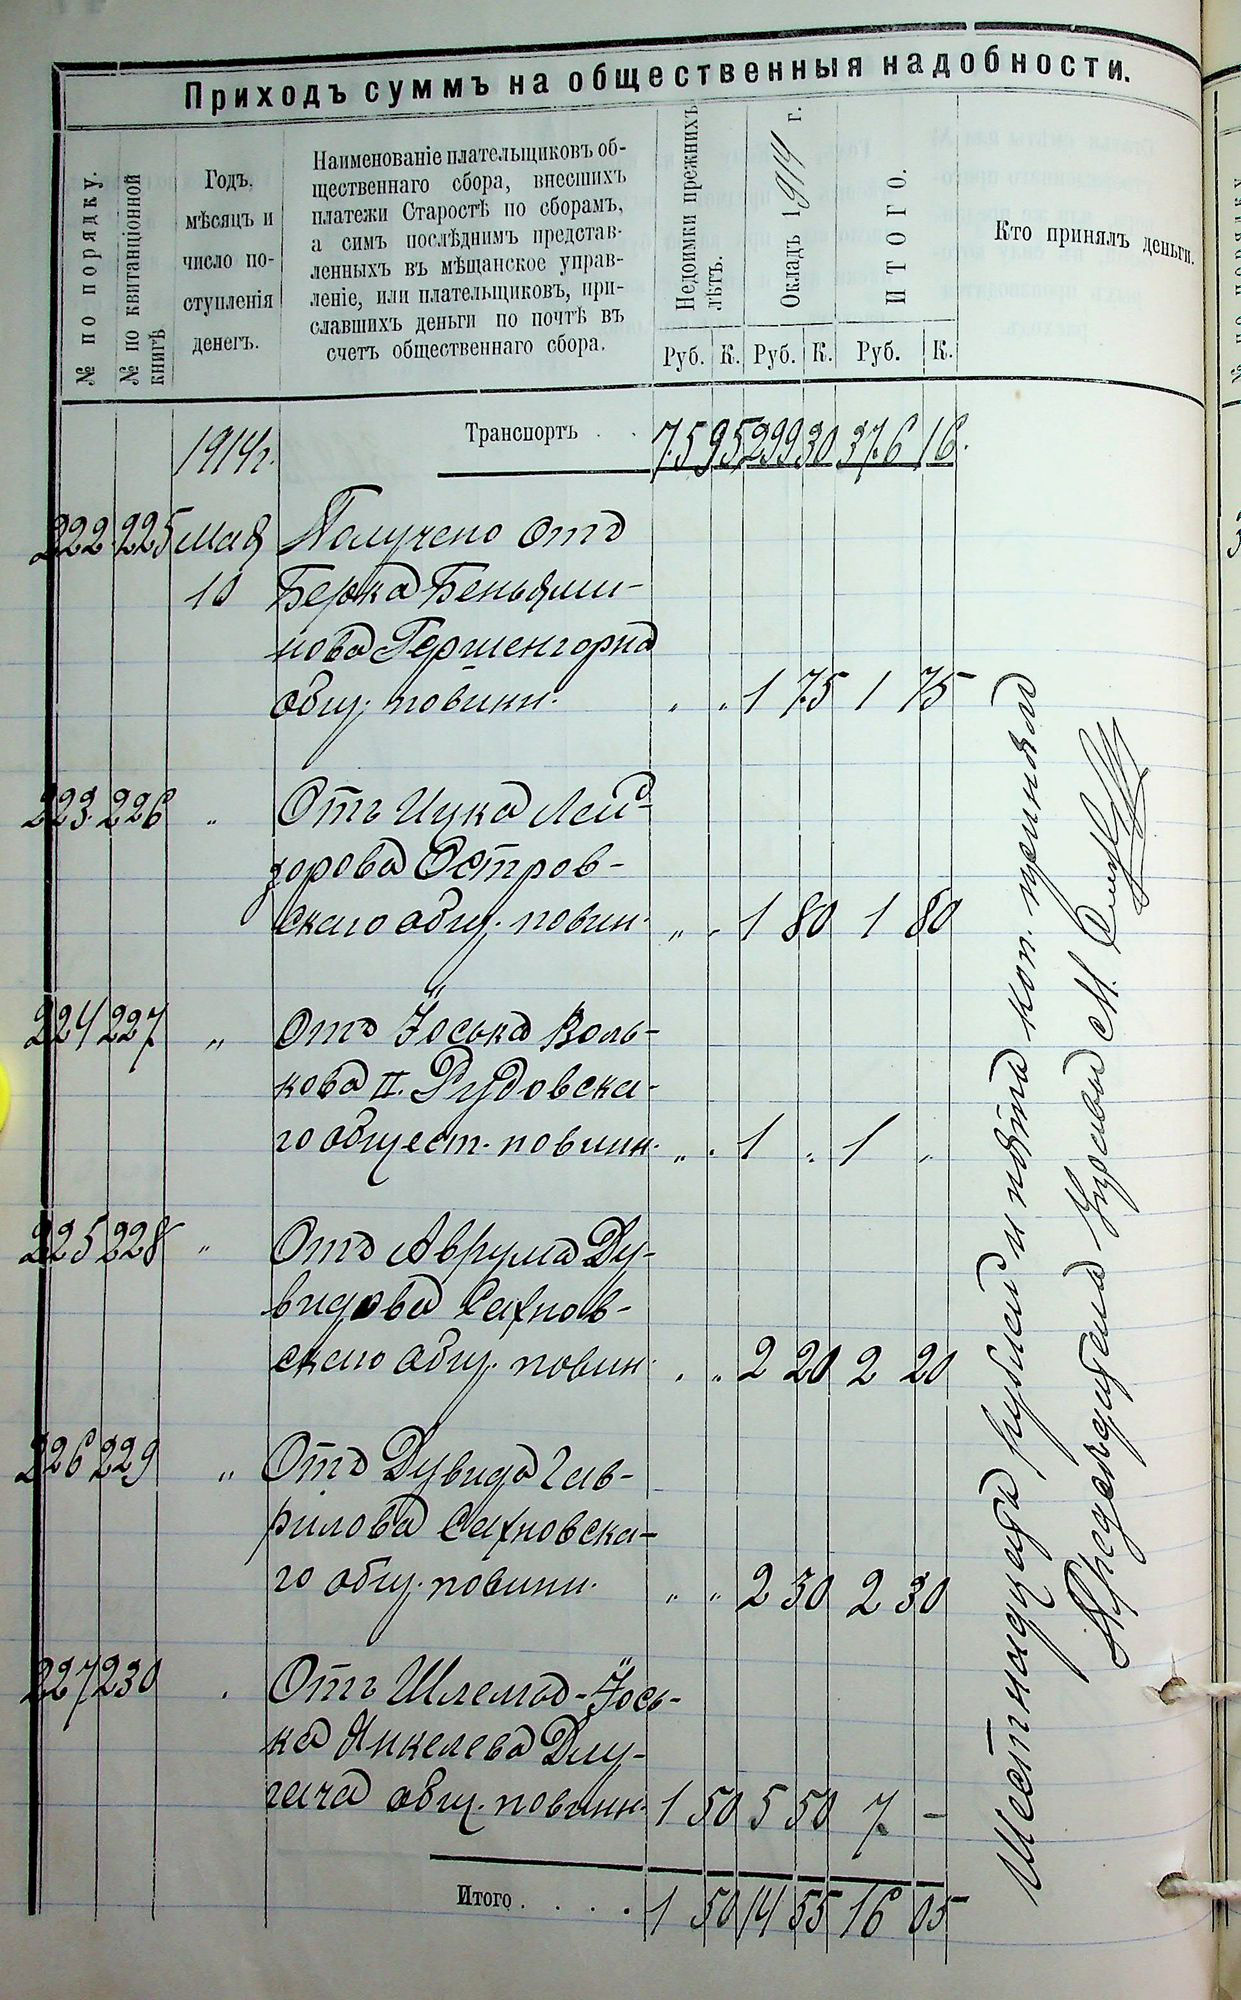 Приходъ суммъ на общественныя надобности.
№ по порядку.
№ по квитанціонной
книгѣ
Годъ,
мѣсяцъ и
число по-
ступленія
денегъ.
Наименованіе плательщиковъ об-
щественнаго сбора, внесшихъ
платежи Старостѣ по сборамъ,
а симъ послѣднимъ представ-
ленныхъ въ мѣщанское управ-
леніе, или плательщиковъ, при-
славшихъ деньги по почтѣ въ
счетъ общественнаго сбора.
Недоимки прежнихъ
лѣтъ.
Окладъ 1914 г.
ИТОГО.
Кто принялъ деньги.
Руб. К. Руб. К. Руб. К.
1914 г. Транспортъ . . 75 95 299 30 376 16.
222 225 Мая Получено отъ
10 Берка Беньями-
нова Гершенгорна
общ. повинн. " " 1 75 1 75
223 226 " Отъ Ицка Лей-
зорова Остров-
скаго общ. повин. " " 1 80 1 80
224 227 " Отъ Іоська Воль-
кова II. Рудовска-
го общест. повинн. " " 1 " 1 "
225 228 " Отъ Аврума Ду-
видова Сахнов-
скаго общ. повин. " " 2 20 2 20
226 229 " Отъ Дувида Гав-
рилова Сахновска-
го общ. повинн. " " 2 30 2 30
227 230 " Отъ Шлема-Іось-
ка Янкелева Длу-
гача общ. повинн. 1 50 5 50 7 -
Итого . . . . 1 50 14 55 16 05
Шестнадцать рублей и пять коп. принялъ
Предсѣдатель Управы М.